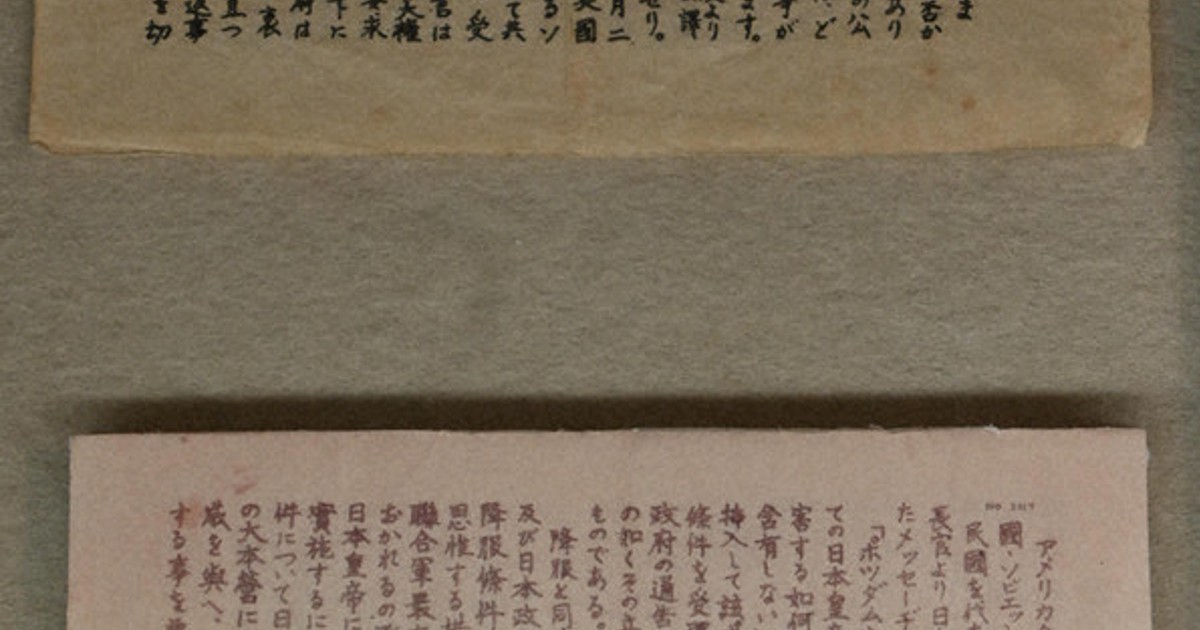 ま
否か
あり
の公
、ど
等が
ます。
より
譯
せり。
月二
英國
るソ
て共
受
官は
大權
要求
下に
府は
衷
且つ
返事
を切
No 2117
アメリカ
國・ソビエッ
民國を代
長官より日
たメッセーヂ
『ポツダム
ての日本皇
害する如何
含有しない
挿入して該
條件を受
政府の通告
の如くその立
ものである。
降服と同
及び日本政
降服條件
思惟する
聯合軍最
おかれるの
日本皇帝に
實施するに
件について日
の大本營に
威を與へ、
する事を